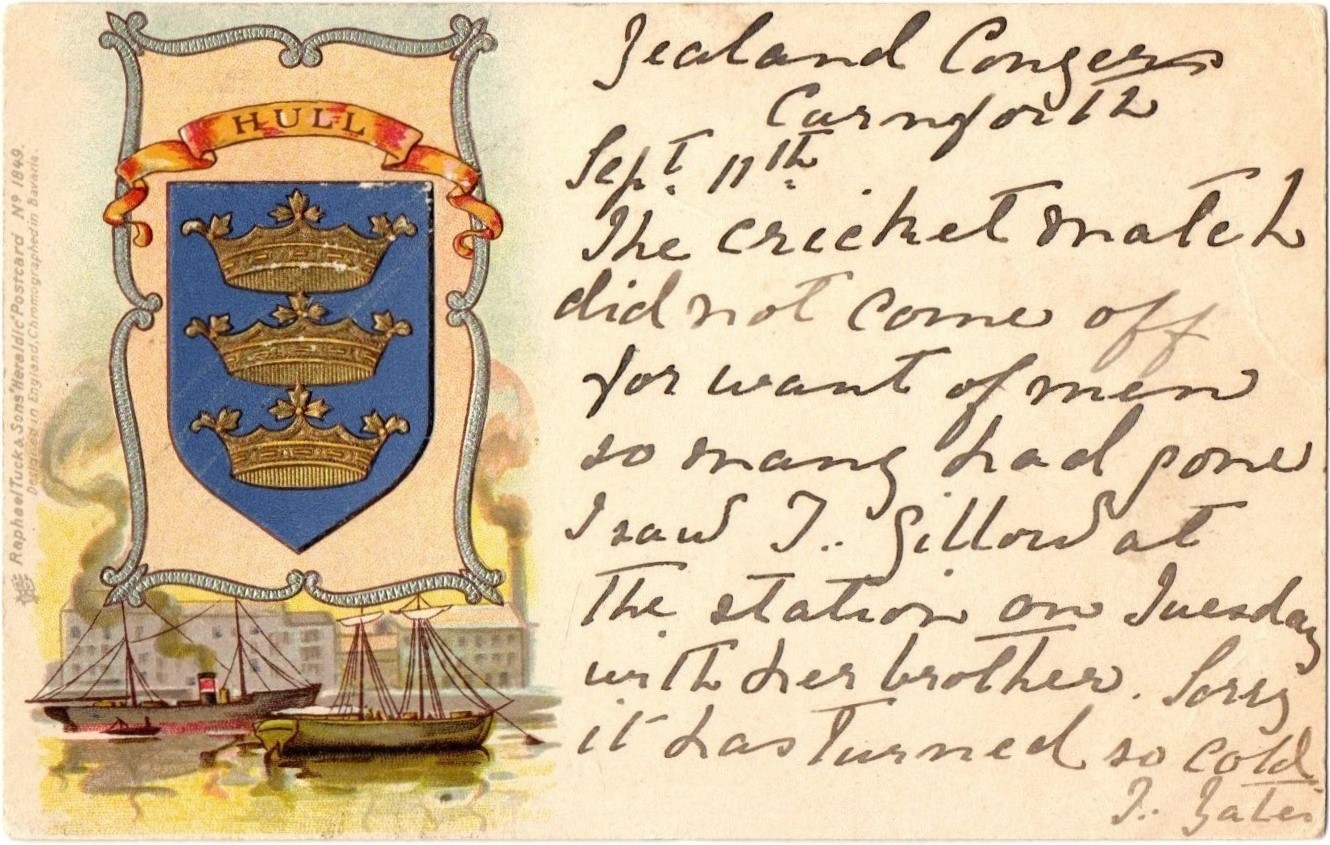 HULL
Raphael Tuck & Sons' "Heraldic" Postcard Nº 1849.
Designed in England, Chromographed in Bavaria.
Yealand Conyers
Carnforth
Sept. 11th
The cricket match
did not come off
for want of men
so many had gone.
I saw T. Gillow at
the station on Tuesday
with her brother. Sorry
it has turned so cold
T. Yates